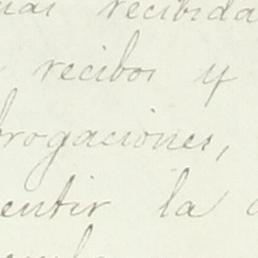 recibida
recibos y
rogaciones,
entir la